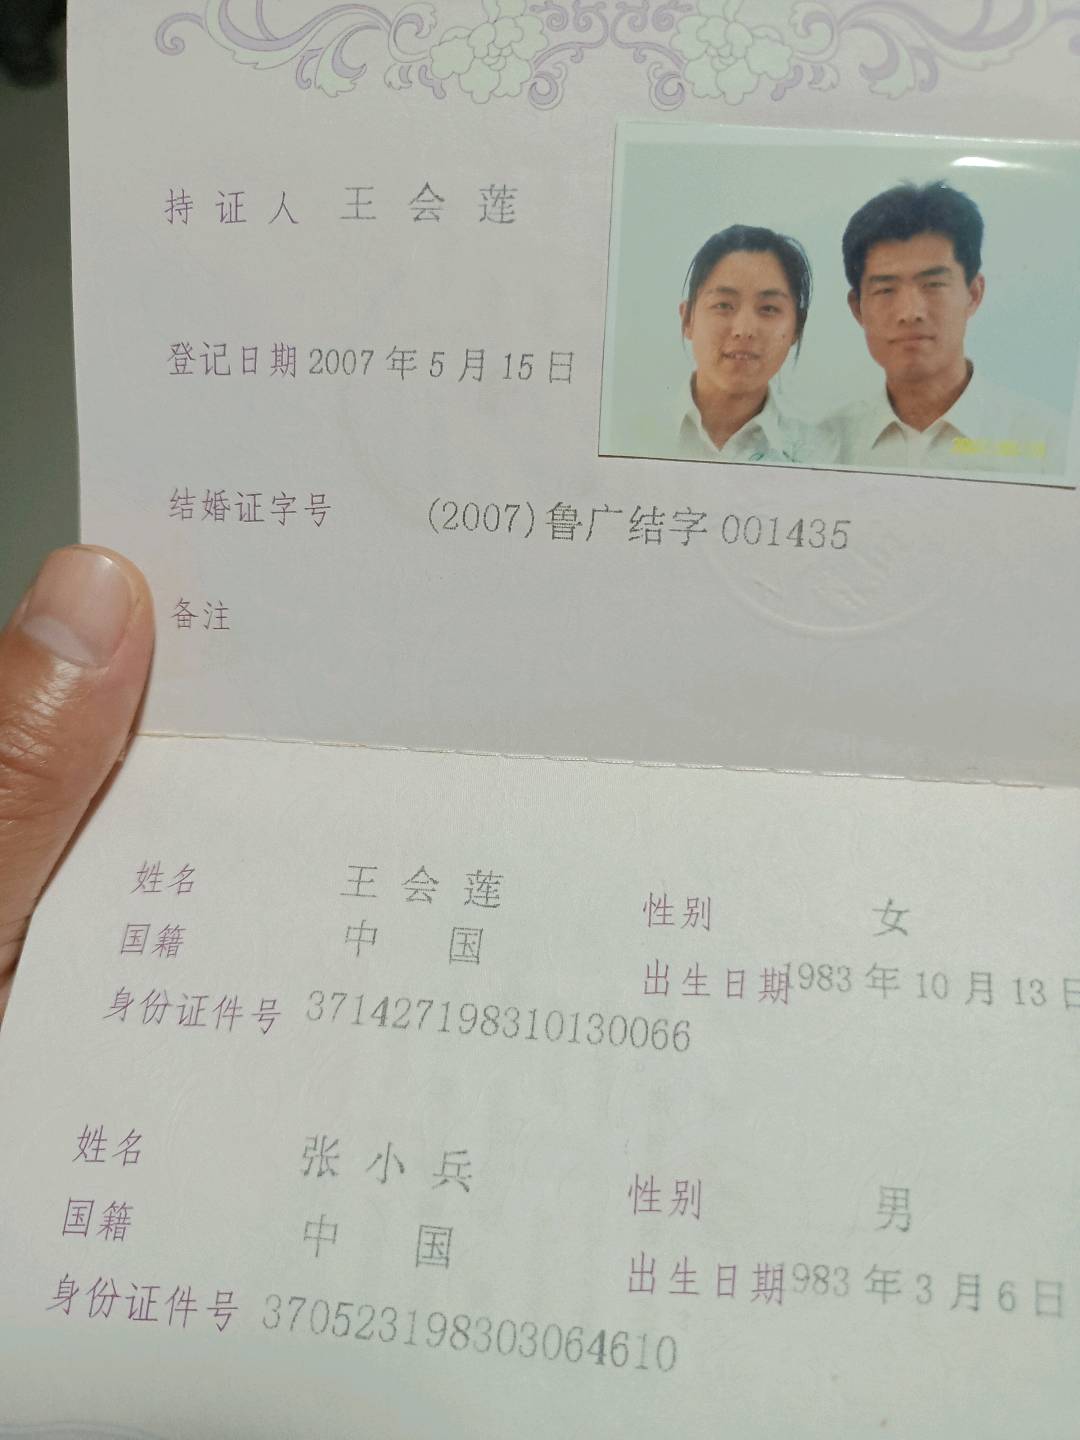 持证人 王会莲
登记日期 2007年5月15日
结婚证字号 (2007)鲁广结字001435
备注
姓名 王会莲 性别 女
国籍 中国 出生日期 1983年10月13日
身份证件号 371427198310130066
姓名 张小兵 性别 男
国籍 中国 出生日期 1983年3月6日
身份证件号 370523198303064610